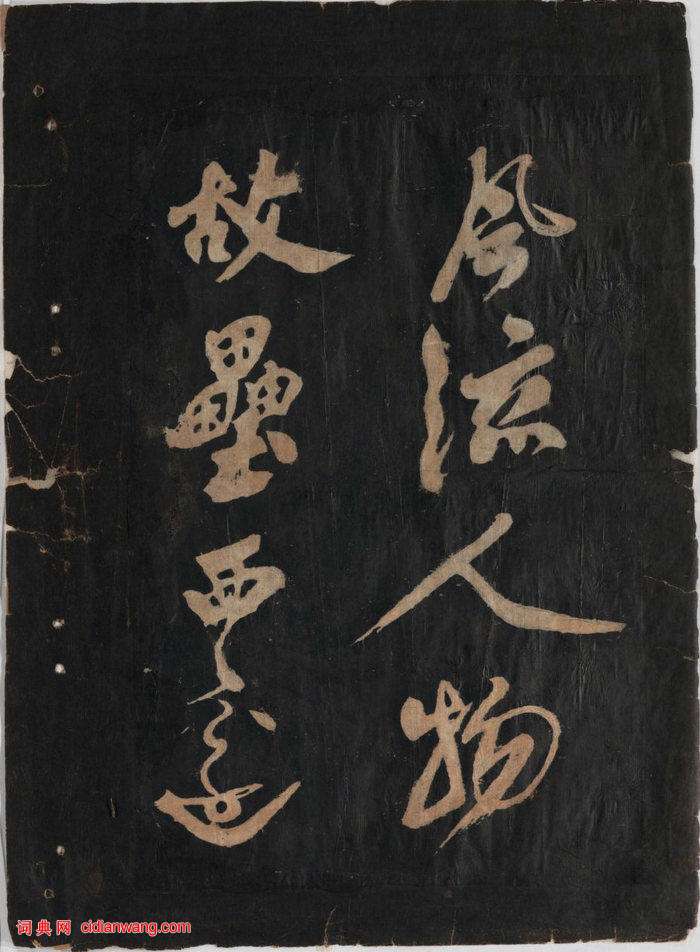 風流人物
故壘西邊
词典网 cidianwang.com